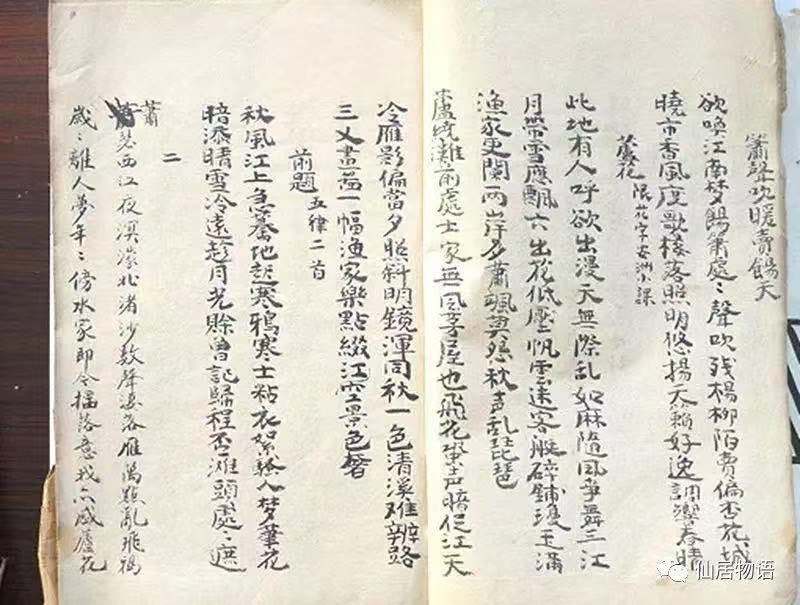 簫聲吹暖賣餳天
欲喚江南夢餳簫處〻聲吹殘楊柳陌賣偏杏花城
曉市香風度歌樓落照明悠揚天籟好逸調瓈春晴
蘆花 限花字安洲小課
此地有人呼欲出漫天無際乱如麻隨風爭舞三江
月帶雪應飄六出花低壓帆雲迷客艇碎鋪瓊玉滿
漁家更闌兩岸多蕭颯莫怨秋声乱琵琶
蘆繞灘前處士家無風茅屋也飛花蛩声暗促江天
冷雁影偏當夕照斜明鏡渾同秋一色清溪难辨路
三义畫啚一幅漁家樂點綴江空景色奢
前題 五律二首
秋風江上急驀地起寒鴉寒士粘衣絮騷人梦筆花
暗添晴雪冷遠趂月光賒曾記歸程否灘頭處〻遮
二
蕭瑟西江夜溟濛北渚沙数聲淒落雁萬點亂飛鴉
歲〻離人夢年〻傍水家即今搖落意我亦感蘆花
仙居物语